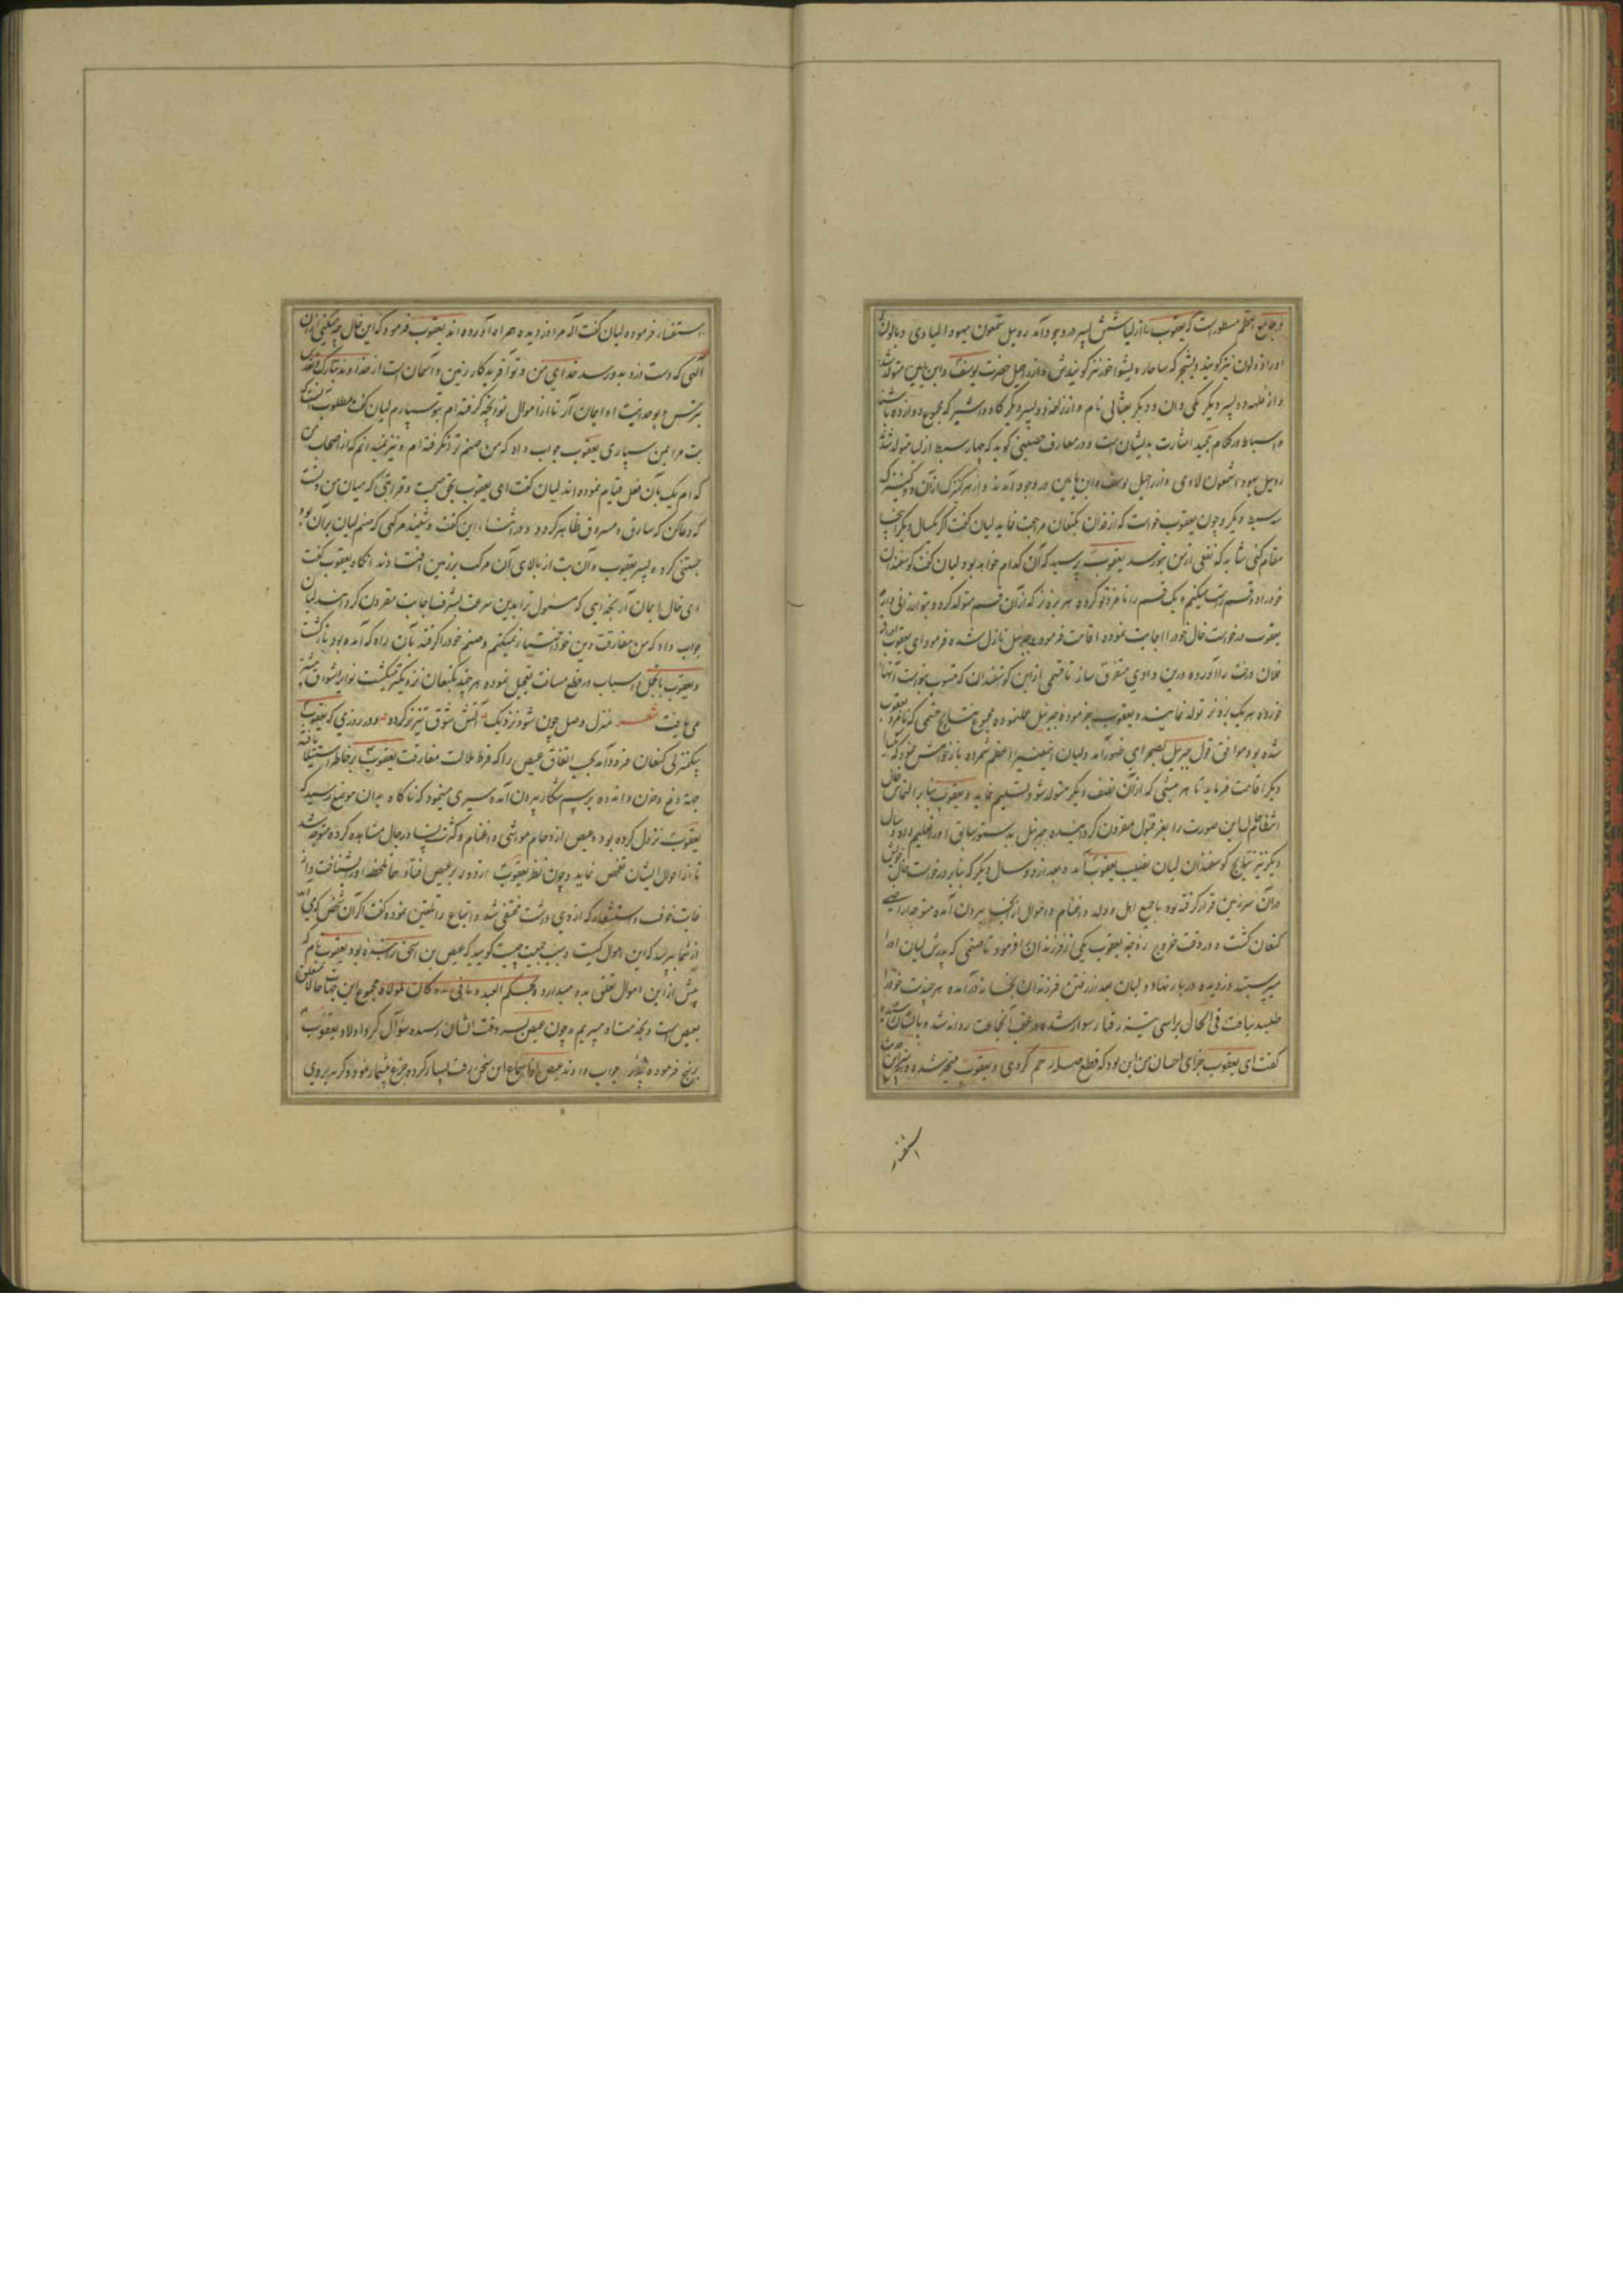 و جامع اعظم مسطور است که یعقوب را از لیا شش پسر در وجود آمد روبیل شمعون یهودا لیا لاوی و بالون
او را زولون نیز گویند و یشجر که
و از بلهه دو پسر دیگر یکی دان و دیگر نفثالی نام و از زلفه دو پسر دیگر کاد و اشیر که مجموع دوازده باشند
و اسباط در کلام مجید اشارت بدیشان است و در معارف حصینی گوید که چهار سبط از لیا متولد شد
روبیل یهودا شمعون لاوی و از راحیل یوسف و ابن یامین در وجود آمدند و از هر کنیزک از آن دو کنیزک
دو سبط دیگر و چون یعقوب خواست که از فدان بکنعان مراجعت نماید لیان گفت اگر یکسال دیگر اینجا
مقام کنی شاید که نفعی از من بتو رسد یعقوب پرسید که آن کدام خواهد بود لیان گفت گوسفندان
خود را دو قسم راست میکنم و یک قسم را نامزد تو کرده هر بره نر که از آن قسم متولد گردد بتو ارزانی دارم
یعقوب درخواست خال خود را اجابت نموده اقامت فرمود و جبرئیل نازل شده فرمود ای یعقوب
فلان درخت را آورده درین وادی متفرق ساز تا قسمی ازین گوسفندان که منسوب بتو است آنها
خورده هر یک بره نر تولد نمایند و یعقوب بفرموده جبرئیل عمل نموده مجموع نتایج قسمی که نامزد یعقوب
شده بود موافق قول جبرئیل بصحرای ظهور آمد و لیان
دیگر اقامت فرماید تا هر میشی که از آن نصف دیگر متولد شود تسلیم نماید و یعقوب بنابر التماس خال
این صورت را بعز قبول مقرون گردانیده جبرئیل بدستور سابق او را تعلیم داد و سال
دیگر نیز نتایج گوسفندان لیان نصیب یعقوب آمد و بعد از دو سال دیگر که بنابر درخواست خال خویش
در آن سرزمین قرار گرفته بود با جمیع اهل و ولد و اغنام و اموال از آنجا بیرون آمده متوجه اراضی
کنعان گشت و در وقت خروج زوجه یعقوب یکی از فرزندان را فرمود تا صنمی که پدرش لیان او را
میپرستید دزدیده در بار نهاد و لیان بعد از رفتن فرزندان بخانه درآمده هر چند بت خود را
طلبید نیافت فی الحال براسی تیز رفتار سوار شده در عقب آن جماعت روانه شد و بایشان رسیده
گفت ای یعقوب جزای احسان من این بود که قطع صله رحم کردی و یعقوب متحیر شده
استفسار
استفسار فرمود و لیان گفت اله مرا دزدیده همراه آورده اند یعقوب فرمود که ای خال چه میکنی از آن
الهی که دست دزد بدو رسد خدای من و تو آفریدگار زمین و آسمان است از خداوند تبارک و تعالی
بترس و بوحدانیت او ایمان آر تا از اموال تو آنچه گرفته ام بتو سپارم لیان گفت مطلوب آنست که
بت مرا بمن سپاری یعقوب جواب داد که من صنم ترا نگرفته ام و نیز نمیدانم که از اصحاب من
کدام یک بآن فعل قیام نموده اند لیان گفت ای یعقوب بحق صحبت و قرابتی که میان من و تست
که دعا کن که سارق و مسروق ظاهر گردد در اثناء این گفت و شنید مرکبی که صنم لیان بر آن بود
جستنی کرد و پسر یعقوب و آن بت از بالای آن مرکب بر زمین افتادند آنگاه یعقوب گفت
ای خال ایمان آر بخدای که مسئول ترا بدین سرعت بشرف اجابت مقرون گردانید لیان
جواب داد که من مفارقت دین خود اختیار نمیکنم و صنم خود را گرفته بآن راه که آمده بود بازگشت
و یعقوب با تجمل و اسباب در قطع مسافت تعجیل نموده هر چند بکنعان نزدیکتر میگشت
می یافت شعر منزل وصل چون شود نزدیک آتش شوق تیزتر گردد و در روزی که یعقوب
بیکمنزلی کنعان فرود آمد بحسب اتفاق عیص را که فرط ملالت مفارقت یعقوب بر خاطر استیلا یافته
جهت دفع حزن و اندوه برسم شکار بیرون آمده سیری مینمود که ناگاه بدان موضع رسید که
یعقوب نزول کرده بود و عیص ازدحام مواشی و اغنام و کثرت نساء و رجال مشاهده کرده متوجه شد
تا از احوال ایشان تفحص نماید و چون نظر یعقوب از دور بر عیص افتاد همان لحظه او را بشناخت و از
غایت خوف و استشعار که از وی داشت مختفی شد و اتباع را تلقین نموده گفت اگر آن شخص
از شما پرسد که این اموال کیست و سبب جمعیت چیست گویید که عیص بن اسحق را بنده بود یعقوب نام که
پیش ازین اموال تعلق بدو میدارد و بحکم العبد و ما فی یده کان لمولاه مجموع این جهات حالا متعلق
بعیص است و بخدمت او میبریم و چون عیص بسر وقت ایشان رسیده سؤال کرد اولاد یعقوب
برنهج فرموده پدر جواب دادند عیص از استماع این سخن رقت بسیار کرده جزع بیشمار نمود